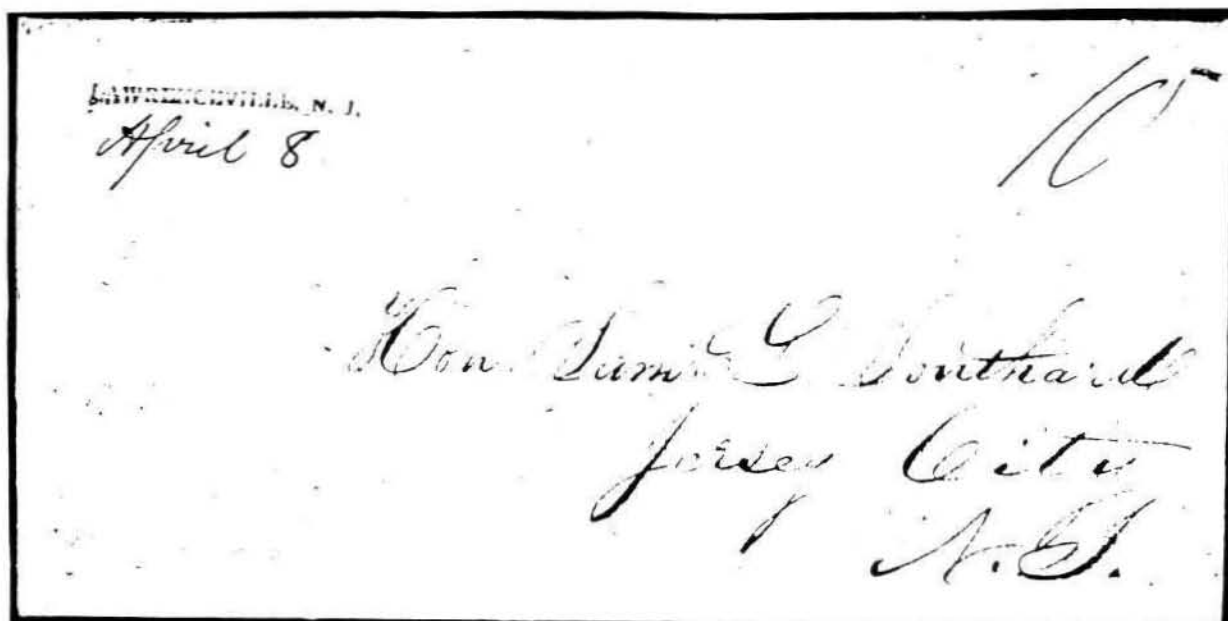 LAWRENCEVILLE, N. J.
April 8
10
Hon. Saml L Southard
Jersey City
N. J.